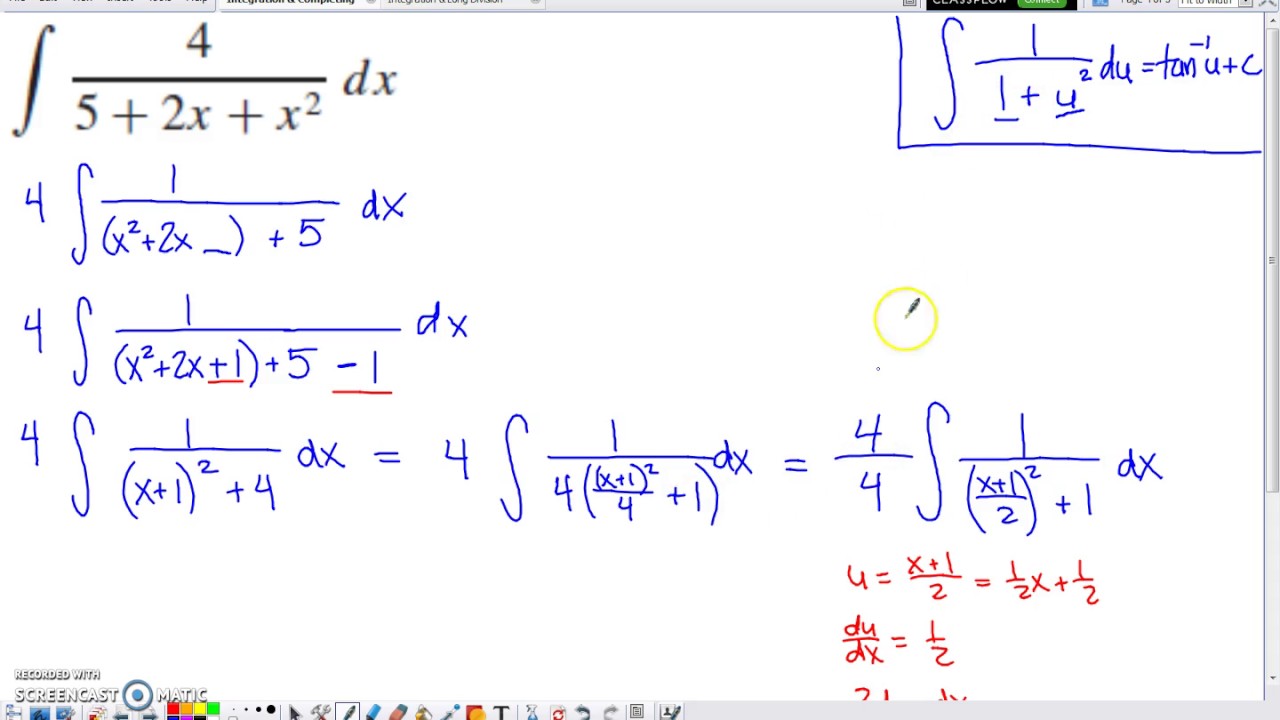 Integration & Completing Integration & Long Division
CLASSFLOW Connect Fit to Width
∫ 4/(5 + 2x + x²) dx
∫ 1/(1 + u²) du = tan⁻¹u + C
4 ∫ 1/((x²+2x _) + 5) dx
4 ∫ 1/((x²+2x+1)+5 -1) dx
4 ∫ 1/((x+1)²+4) dx = 4 ∫ 1/(4((x+1)²/4 + 1)) dx = 4/4 ∫ 1/(((x+1)/2)² + 1) dx
u = (x+1)/2 = ½x + ½
du/dx = ½
RECORDED WITH
SCREENCAST MATIC